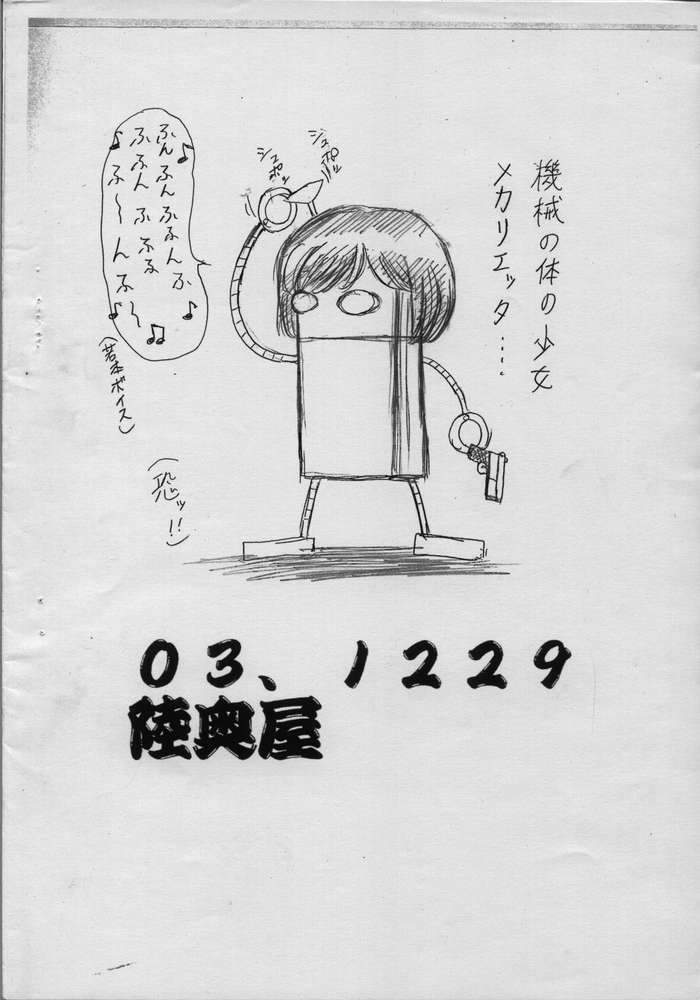 機械の体の少女
メカリエッタ‥‥
ジュポッ
ジュポッ
ふんふんふるんふ
ふふん ふふる
ふ〜んふ〜
(若本ボイス)
(恐ッ!!)
03、1229
陸奥屋